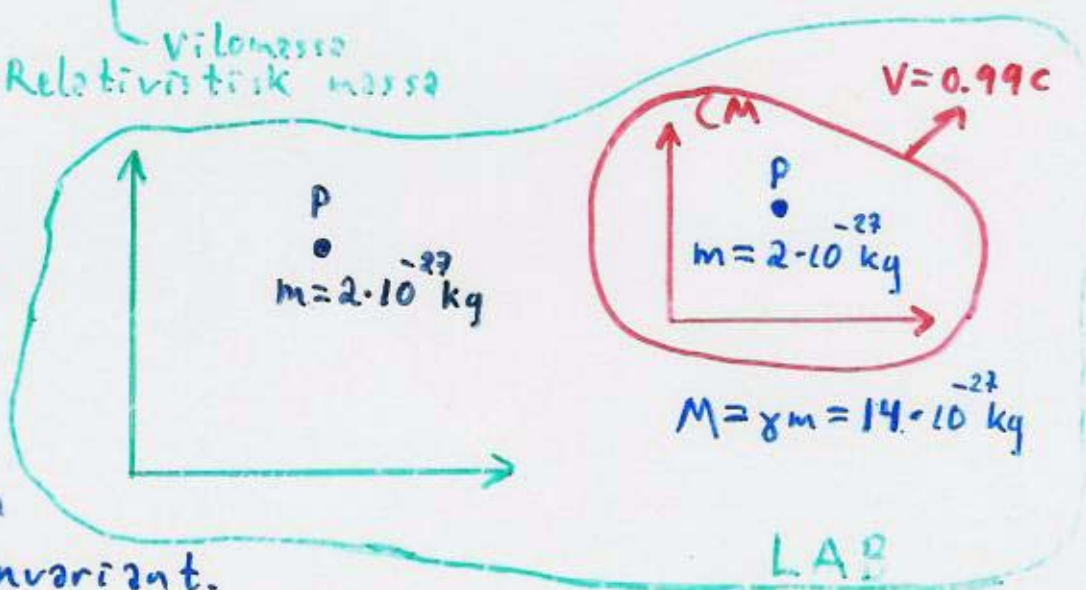 Vilomassa
Relativistisk massa
V=0.99c
CM
P
m=2·10^-27 kg
P
m=2·10^-27 kg
M=γm=14·10^-27 kg
LAB
nvariant.